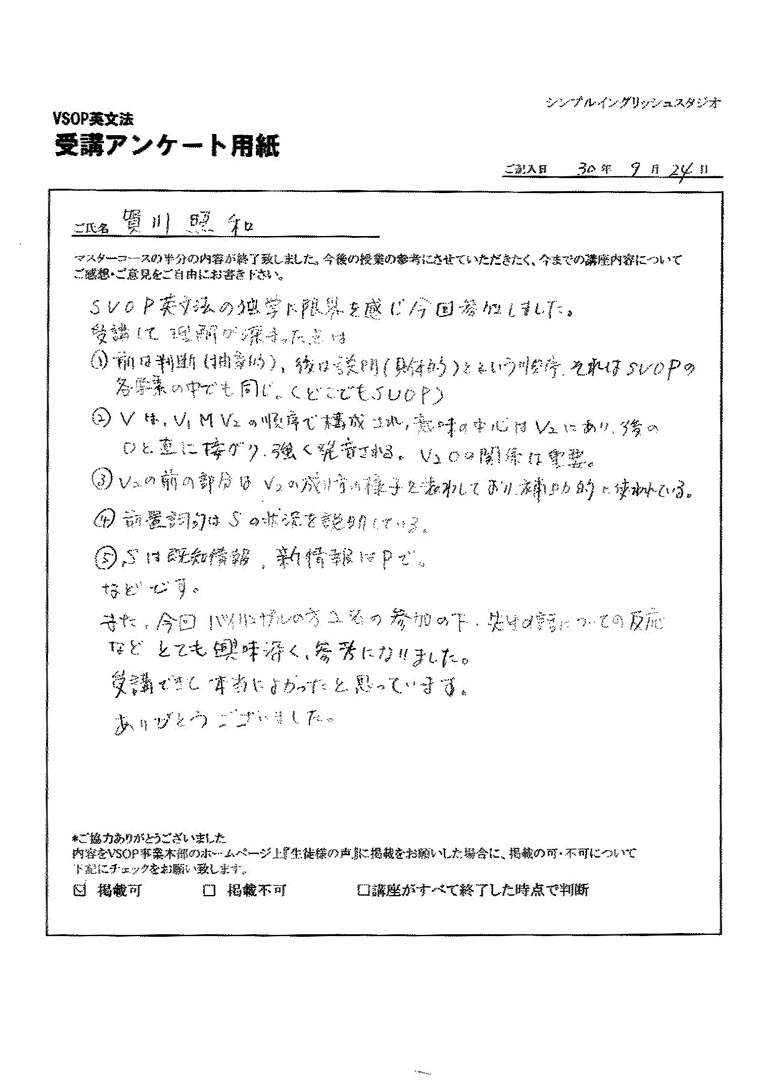 シンプルイングリッシュスタジオ
VSOP英文法
受講アンケート用紙
ご記入日 30年 9月 24日
ご氏名 買川 照和
マスターコースの半分の内容が終了致しました。今後の授業の参考にさせていただきたく、今までの講座内容について
ご感想・ご意見をご自由にお書き下さい。
SVOP英文法の独学に限界を感じ今回参加しました。
受講して理解が深まった点は
①前は判断(抽象的)、後は説明(具体的)とという順序、それはSVOPの
各要素の中でも同じ。(どこでもSVOP)
②Vは、V1 M V2の順序で構成され、意味の中心はV2にあり、後の
Oと直に接がり、強く発音される。V2 Oの関係は重要。
③V2の前の部分はV2の成り方の様子を表わしており、補助的に使われている。
④前置詞句はSの状況を説明している。
⑤Sは既知情報、新情報はPで。
などです。
また、今回バイリンガルの方2名の参加の下、先生の話についての反応
などとても興味深く、参考になりました。
受講できて本当によかったと思っています。
ありがとうございました。
*ご協力ありがとうございました
内容をVSOP事業本部のホームページ上『生徒様の声』に掲載をお願いした場合に、掲載の可・不可について
下記にチェックをお願い致します。
☑ 掲載可 □ 掲載不可 □講座がすべて終了した時点で判断